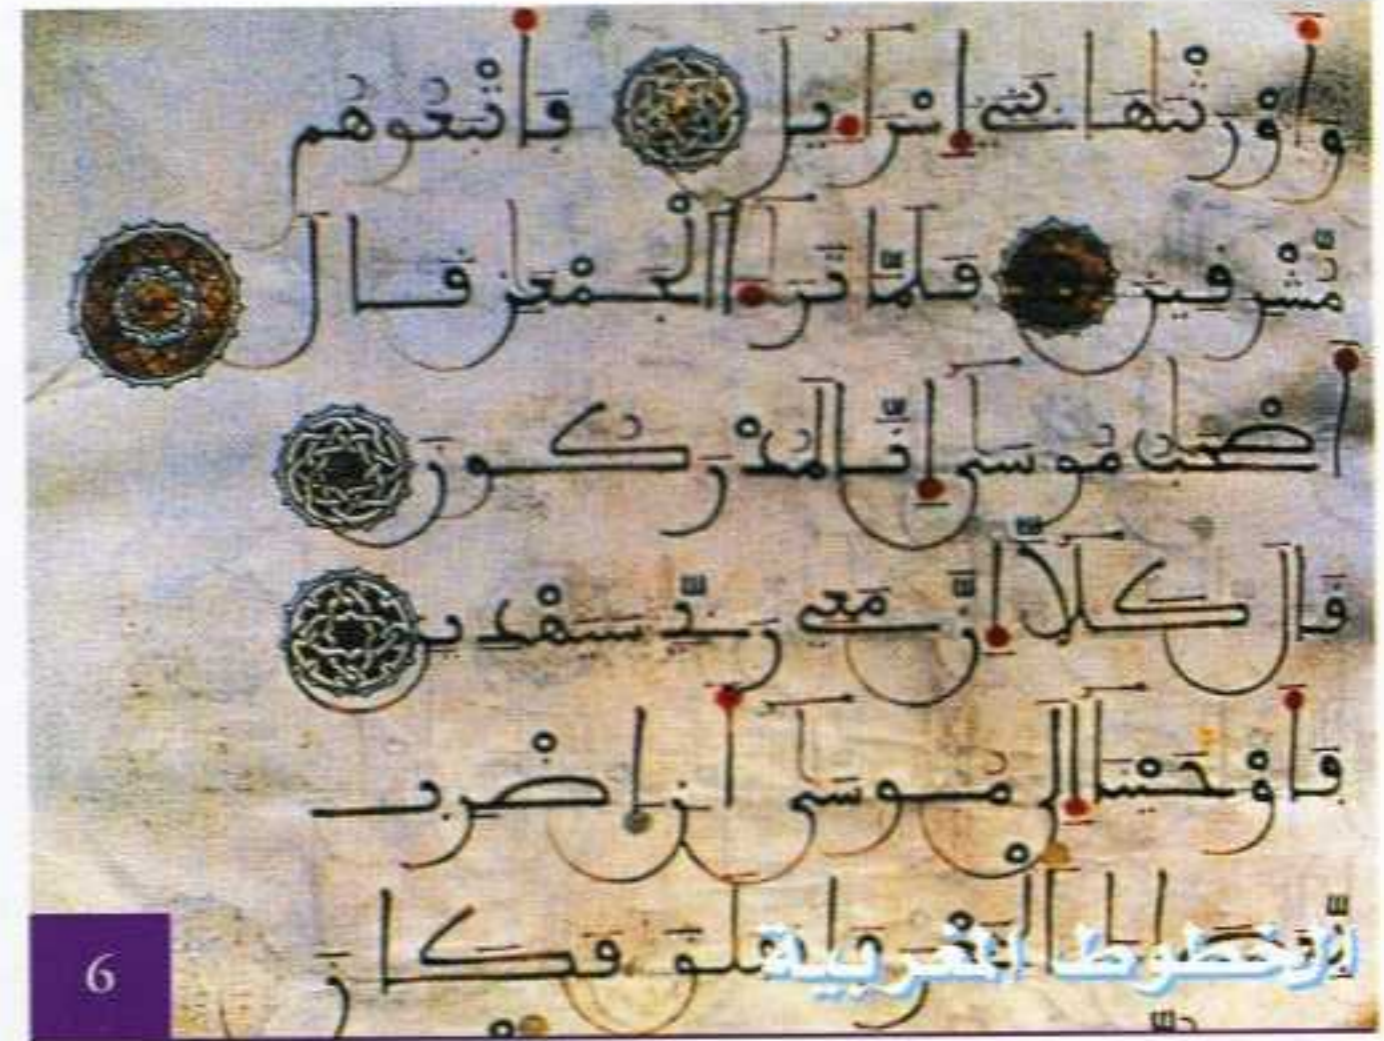 وَأَوْرَثْنَٰهَا بَنِىٓ إِسْرَآءِيلَ فَأَتْبَعُوهُم
مُّشْرِقِينَ فَلَمَّا تَرَٰٓءَا اَ۬لْجَمْعَٰنِ قَالَ
أَصْحَٰبُ مُوسَىٰٓ إِنَّا لَمُدْرَكُونَ
قَالَ كَلَّآ إِنَّ مَعِى رَبِّى سَيَهْدِينِ
فَأَوْحَيْنَآ إِلَىٰ مُوسَىٰٓ أَنِ اِ۪ضْرِب
بِّعَصَاكَ اَ۬لْبَحْرَ فَانفَلَقَ فَكَانَ
الخطوط المغربية
6